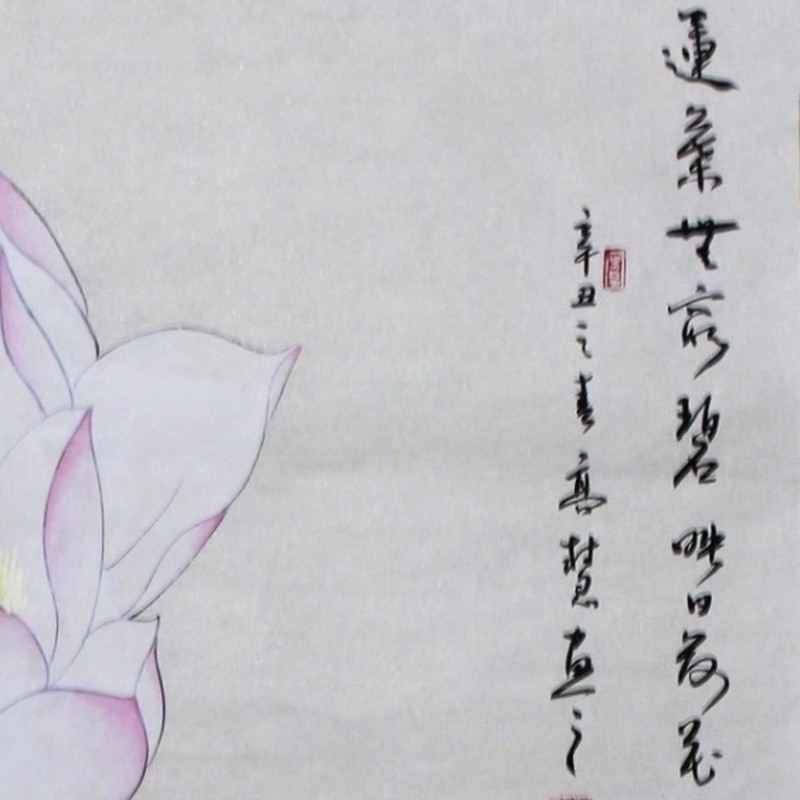 蓮葉無窮碧映日荷花
辛丑之春高慧画之